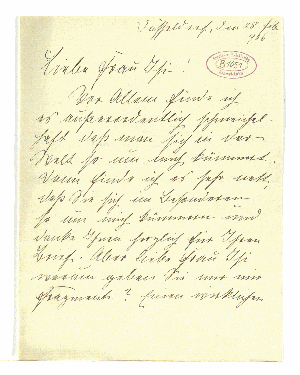 Düsseldorf, den 28 Feb.
1936
Liebe Frau Isi!
Vor Allem finde ich
es außerordentlich schmeichel-
haft daß man sich in der
Welt so um mich kümmert.
Dann finde ich es sehr nett,
daß Sie sich im Besonderen
so um mich kümmern und
danke Ihnen herzlich für Ihren
Brief. Aber liebe Frau Isi
warum geben Sie mir nur
Fragmente? Einen wirklichen